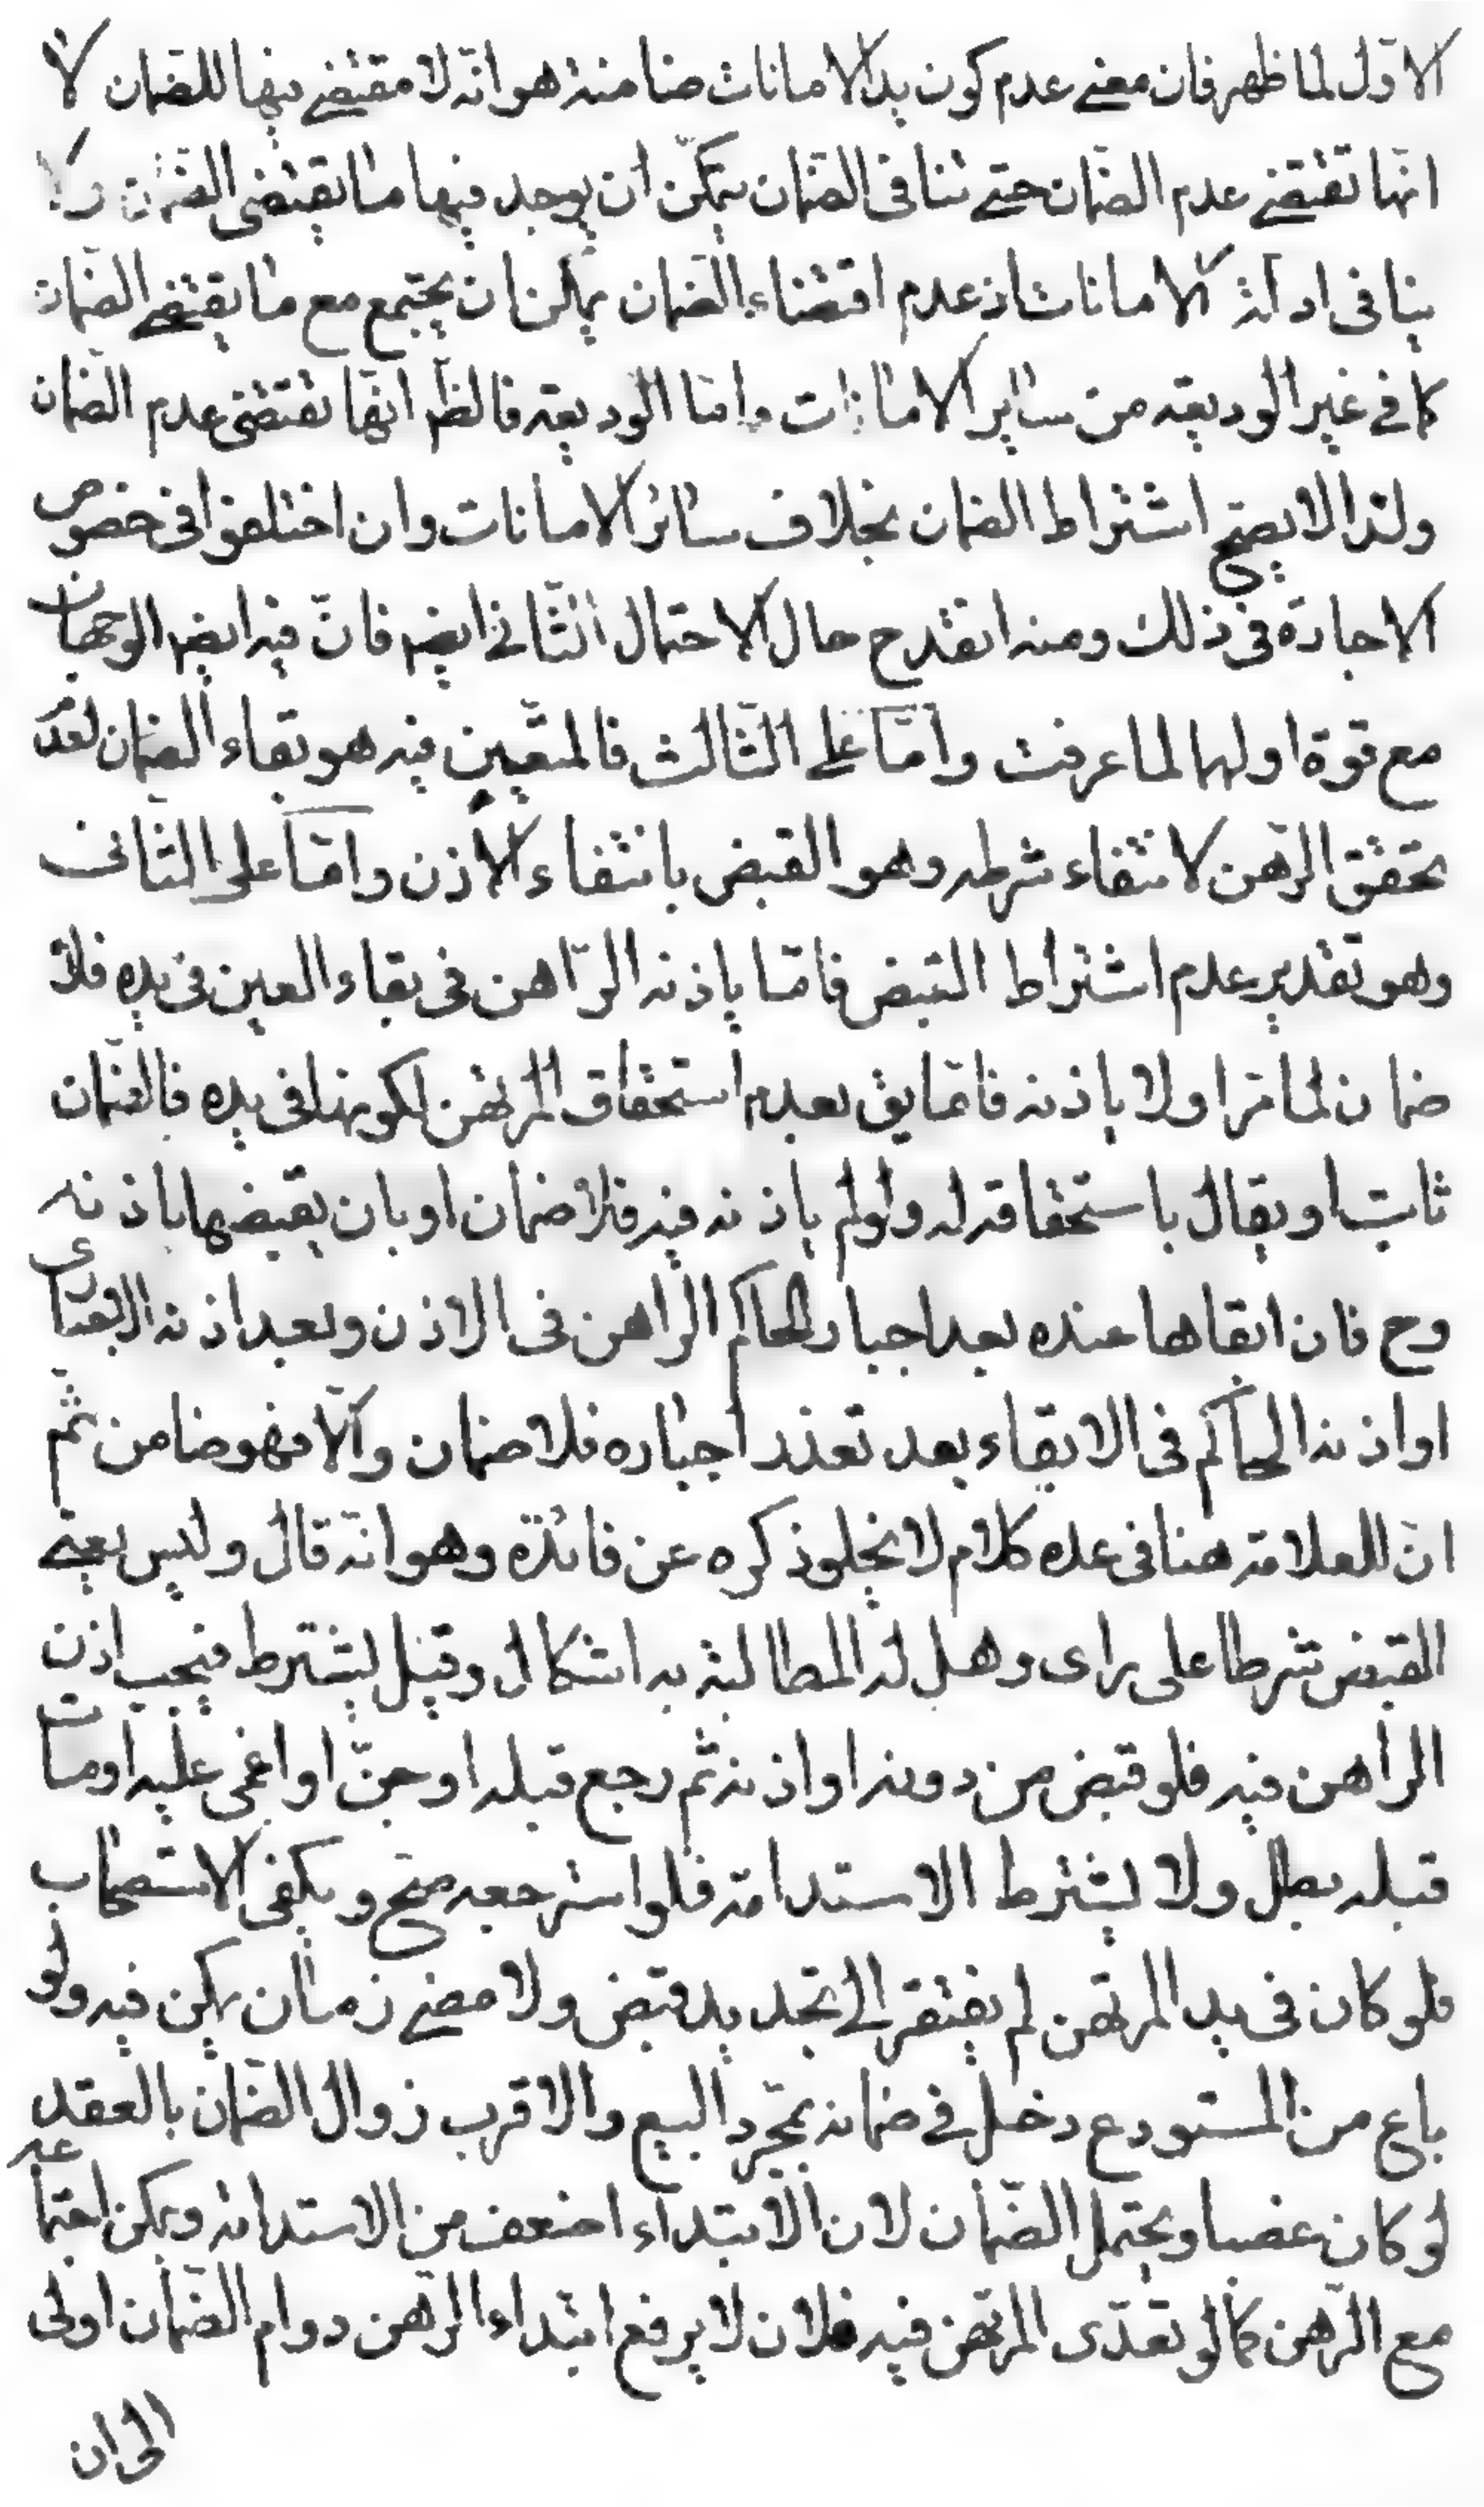 الاوّل لما ظهر فان معنى عدم كون يد الامانات ضامنة هو انّه لا مقتضى فيها للضمان لا
انّها تقتضى عدم الضمان حتى تنافى الضمان يتمكّن ان يوجد فيها ما يقتضى الضمان ولا
ينافى ادلّة الامانات اذ عدم اقتضاء الضمان يمكن ان يجتمع مع ما يقتضى الضمان
كما فى غير الوديعة من ساير الامانات وامّا الوديعة فالظّ انّها تقتضى عدم الضمان
ولذا لا يصحّ اشتراط الضمان بخلاف سائر الامانات وان اختلفوا فى خصوص
الاجارة فى ذلك ومنه انقدح حال الاحتمال الثّانى ايضا فانّ فيه ايضا الوجهان
مع قوة اولهما لما عرفت وامّا على الثّالث فالمتعيّن فيه هو بقاء الضمان لعدم
تحقق الرّهن لانتفاء شرطه وهو القبض بانتفاء الاذن وامّا على الثّانى
وهو تقدير عدم اشتراط القبض فامّا ياذنه الرّاهن فى بقاء العين فى يده فلا
ضمان لما مرّ او لا ياذنه فامّا يق بعدم استحقاق المرتهن لكونها فى يده فالضمان
ثابت او يقال باستحقاقه له ولو لم ياذنه فيه فلا ضمان او بان يقبضها باذنه
وح فان ابقاها عنده بعد اجبار الحاكم الراهن فى الاذن وبعد اذنه
او اذنه الحاكم فى الابقاء بعد تعذر اجباره فلا ضمان والّا فهو ضامن ثم
انّ للعلامة هنا فى عده كلام لا يخلو ذكره عن فائدة وهو انّه قال وليس يعنى
القبض شرطا على راى وهل له المطالبة به اشكال وقيل يشترط فيجب اذن
الراهن فيه فلو قبض من دونه او اذنه ثم رجع قبله او جنّ او اغمى عليه او مات
قبله بطل ولا يشترط الاستدامة فلو استرجعه صحّ ويكفى الاستصحاب
فلو كان فى يد المرتهن لم يفتقر الى تجديد قبض ولا مضى زمان يمكن فيه ولو
باع من المستودع دخل فى ضمانه بمجرّد البيع والاقرب زوال الضّمان بالعقد
لو كان غصبا ويحتمل الضّمان لان الابتداء اضعف من الاستدامة ويمكن اجتماعه
مع الرّهن كما لو تعدّى المرتهن فيه فلان لا يرفع ابتداء الرّهن دوام الضّمان اولى
الى ان